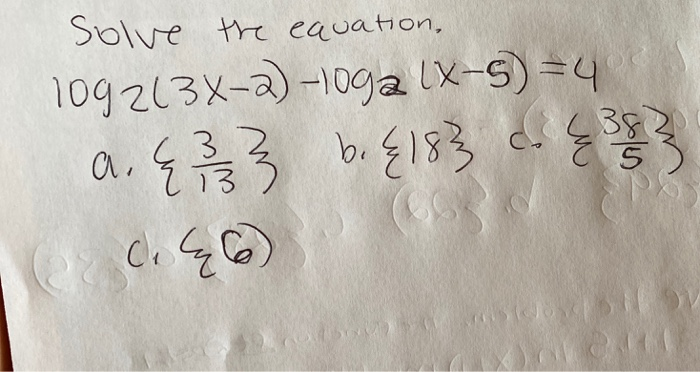 Solve the equation.
log2(3x-2)-log2(x-5)=4
a. {3/13} b. {18} c. {38/5}
c. {6)